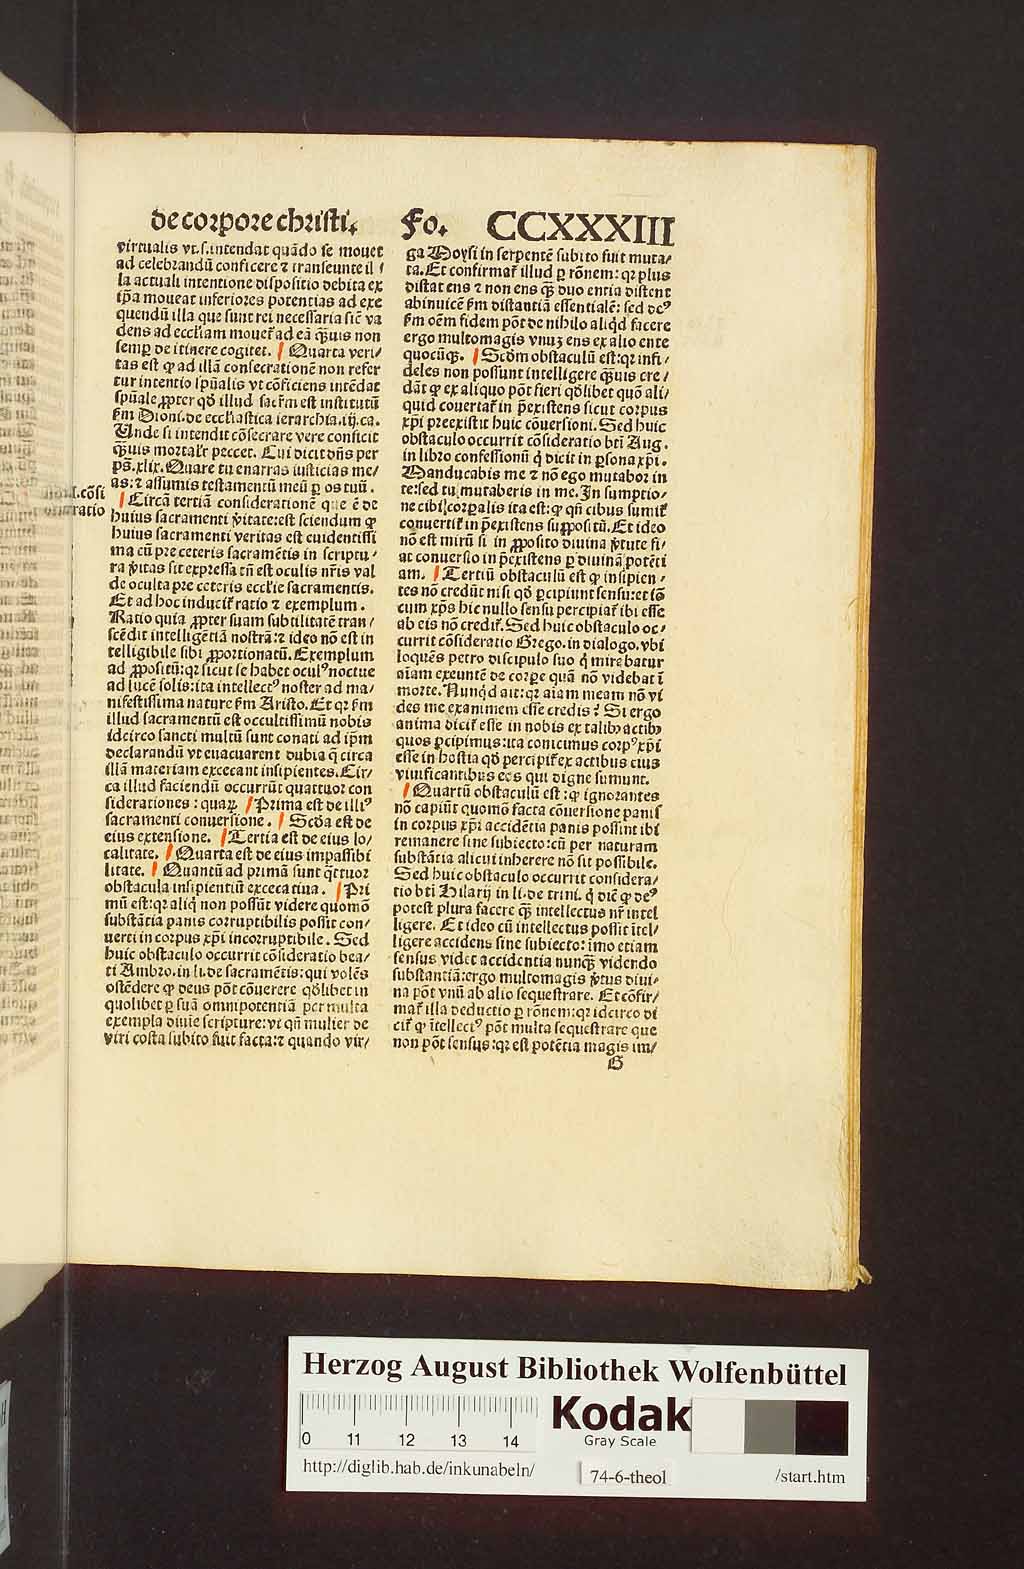 de corpore christi.
Fo. CCXXXIII
virtualis vt.s.intendat quãdo se mouet
ad celebrandũ conficere ⁊ transeunte il
la actuali intentione dispositio debita ex
ip̃a moueat inferiores potentias ad exe
quendũ illa que sunt rei necessaria sic̃ va
dens ad eccl'iam mouet̃ ad eã q̃uis non
semp̱ de itinere cogitet. Quarta veri-
tas est ꝙ ad illã consecrationẽ non refer
tur intentio spũalis vt cõficiens intẽdat
spũale ꝓpter qð illud sac̃m est institutũ
ẜm Dioni.de eccl'iastica ierarchia.iij.ca.
Unde si intendit cõsecrare vere conficit
q̃uis mortal'r peccet. Cui dicit dñs per
ps̃.xlix. Quare tu enarras iusticias me/
as:⁊ assumis testamentũ meũ p̱ os tuũ.
Circa tertiã considerationẽ que ẽ de
huius sacramenti ṽitate:est sciendum ꝙ
huius sacramenti veritas est euidentissi
ma cũ pre ceteris sacramẽtis in scriptu/
ra ṽitas sit expressa tñ est oculis nr̃is val
de oculta pre ceteris eccl'ie sacramentis.
Et ad hoc inducit̃ ratio ⁊ exemplum.
Ratio quia ꝓpter suam subtilitatẽ tran/
scẽdit intelligẽtiã nostrã:⁊ ideo nõ est in
telligibile sibi ꝓportionatũ. Exemplum
ad ꝓpositũ:qꝛ sicut se habet oculꝰ noctue
ad lucẽ solis:ita intellectꝰ noster ad ma/
nifestissima nature ẜm Aristo. Et qꝛ ẜm
illud sacramentũ est occultissimũ nobis
idcirco sancti multũ sunt conati ad ip̃m
declarandũ vt euacuarent dubia q̃ circa
illã materiam excecant insipientes. Cir/
ca illud faciendũ occurrũt quattuor con
siderationes: quaꝝ Prima est de illiꝰ
sacramenti conuersione. Scd̃a est de
eius extensione. Tertia est de eius lo/
calitate. Quarta est de eius impassibi
litate. Quantũ ad primã sunt q̃ttuor
obstacula insipientiũ excecatiua. Pri
mũ est:qꝛ aliq̃ non possũt videre quomõ
substãtia panis corruptibilis possit con/
uerti in corpus xp̃i incorruptibile. Sed
huic obstaculo occurrit cõsideratio bea/
ti Ambro.in li.de sacramẽtis:qui volẽs
ostẽdere ꝙ deus põt cõuerere qðlibet in
quolibet p̱ suã omnipotentiã per multa
exempla diuine scripture:vt qñ mulier de
viri costa subito fuit facta:⁊ quando vir/
ga Moysi in serpentẽ subito fuit muta/
ta. Et confirmat̃ illud p̱ rõnem: qꝛ plus
distat ens ⁊ non ens q̃ȝ duo entia distent
abinuicẽ ẜm distantiã essentialẽ: sed deꝰ
ẜm oẽm fidem põt de nihilo aliqd facere
ergo multomagis vnuȝ ens ex alio ente
quocũqȝ. Scd̃m obstaculũ est:qꝛ infi/
deles non possunt intelligere q̃uis cre/
dãt ꝙ ex aliquo põt fieri qðlibet quõ ali/
quid couertat̃ in p̃existens sicut corpus
xp̃i preexistit huic cõuersioni. Sed huic
obstaculo occurrit cõsideratio bt̃i Aug.
in libro confessionũ q̃ dicit in p̱sona xp̃i.
Manducabis me ⁊ nõ ego mutabor in
te:sed tu mutaberis in me. In sumptio/
ne cibi corp̱alis ita est:ꝙ qñ cibus sumit̃
conuertit̃ in p̃existens suppositũ. Et ideo
nõ est mirũ si in ꝓposito diuina ṽtute fi/
at conuersio in p̃existens p̱ diuinã potẽti
am. Tertiũ obstaculũ est ꝙ insipien/
tes nõ credũt nisi qð p̱cipiunt sensu:et iõ
cum xp̃s hic nullo sensu percipiat̃ ibi esse
ab eis nõ credit̃. Sed huic obstaculo oc/
currit cõsideratio Grego.in dialogo.vbi
loquẽs petro discipulo suo q̃ mirebatur
aĩam exeuntẽ de corpe quã nõ videbat ĩ
morte. Nunqd ait:qꝛ aĩam meam nõ vi
des me exanimem esse credis? Si ergo
anima dicit̃ esse in nobis ex talibꝫ actibꝫ
quos p̱cipimus:ita conicimus corpꝰ xp̃i
esse in hostia qð percipit̃ ex actibus eius
viuificantibus eos qui digne sumunt.
Quartũ obstaculũ est: ꝙ ignorantes
nõ capiũt quomõ facta cõuersione panis
in corpus xp̃i accidẽtia panis possint ibi
remanere sine subiecto:cũ per naturam
substãtia alicui inherere nõ sit possibile.
Sed huic obstaculo occurrit considera/
tio bt̃i Hilarij in li.de trini. q̃ dic̃ ꝙ deꝰ
potest plura facere q̃ȝ intellectus nr̃ intel
ligere. Et ideo cũ intellectus possit ĩtel/
ligere accidens sine subiecto: imo etiam
sensus videt accidentia nunq̃ȝ videndo
substantiã:ergo multomagis ṽtus diui/
na põt vnũ ab alio sequestrare. Et cõfir/
mat̃ illa deductio p̱ rõnem:qꝛ idcirco di
cit̃ ꝙ ĩtellectꝰ põt multa sequestrare que
non põt sensus:qꝛ est potẽtia magis im/
G
cõsi
ratio
Herzog August Bibliothek Wolfenbüttel
0 11 12 13 14
Kodak
Gray Scale
http://diglib.hab.de/inkunabeln/
74-6-theol
/start.htm